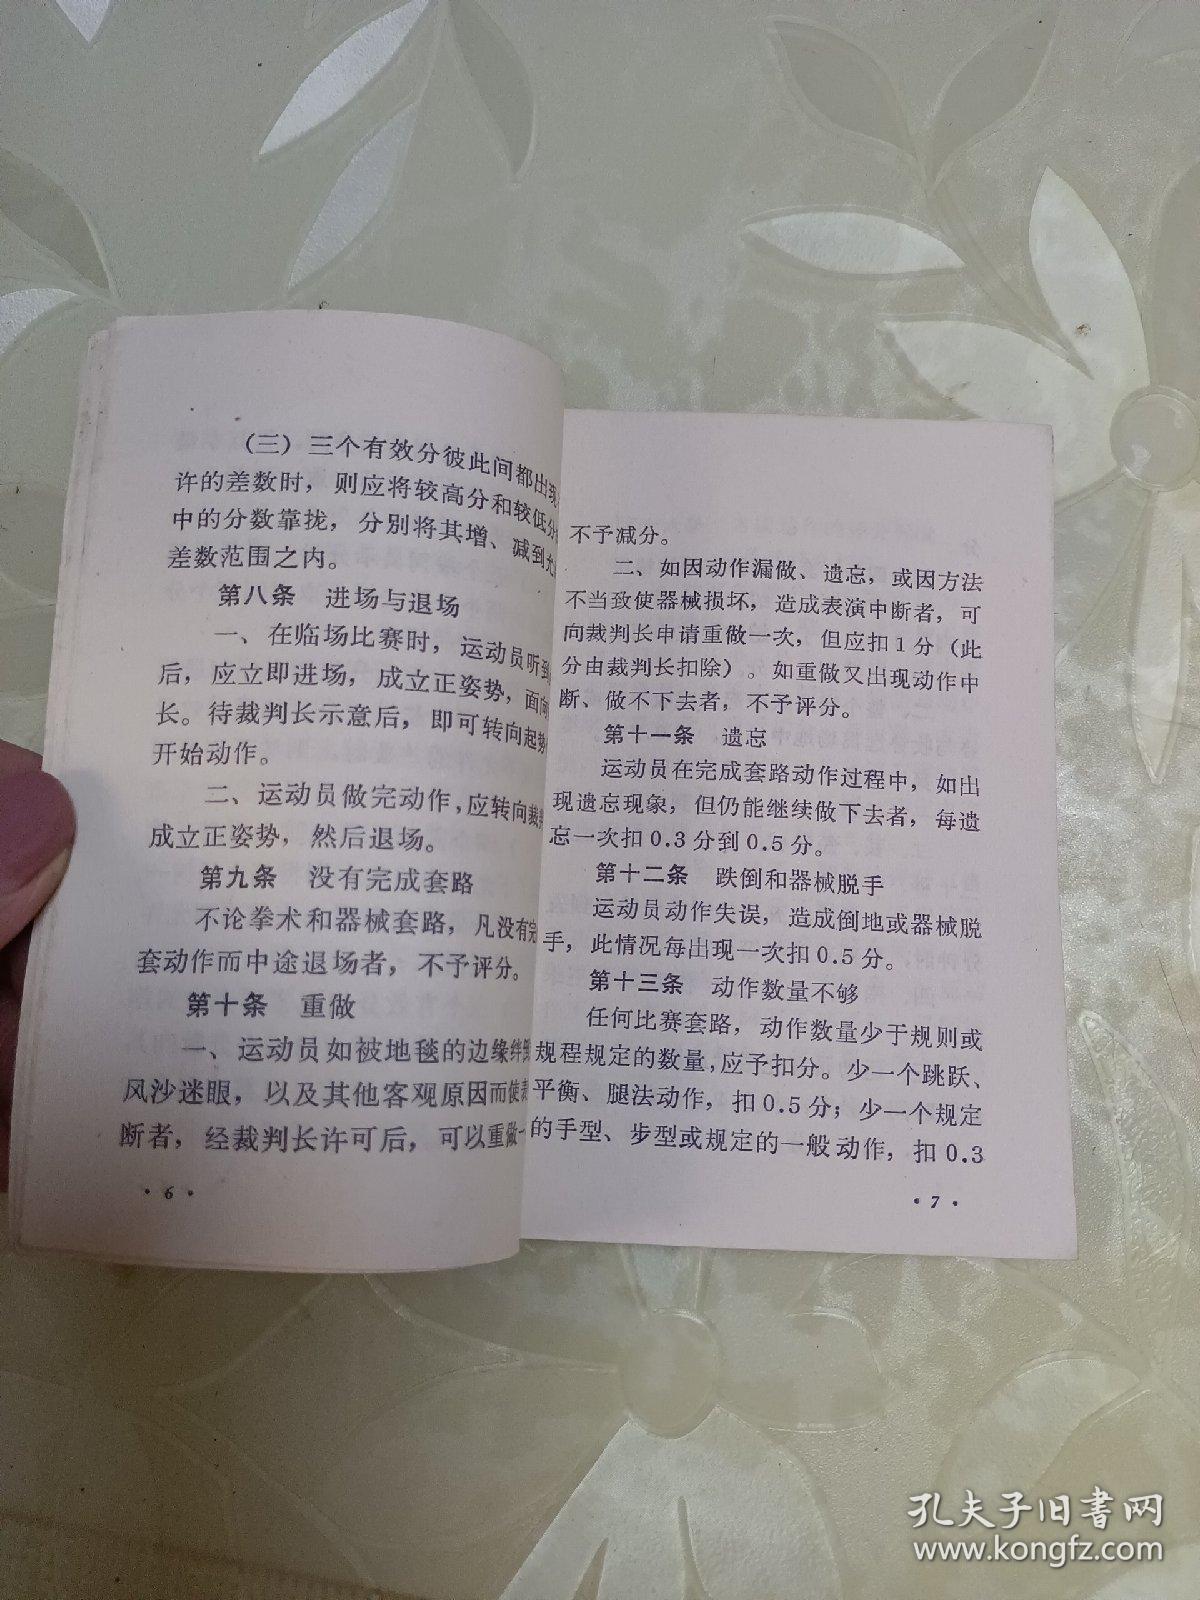 （三）三个有效分彼此间都出现
许的差数时，则应将较高分和较低分
中的分数靠拢，分别将其增、减到允
差数范围之内。
第八条 进场与退场
一、在临场比赛时，运动员听到
后，应立即进场，成立正姿势，面向
长。待裁判长示意后，即可转向起势
开始动作。
二、运动员做完动作，应转向裁
成立正姿势，然后退场。
第九条 没有完成套路
不论拳术和器械套路，凡没有完
套动作而中途退场者，不予评分。
第十条 重做
一、运动员如被地毯的边缘绊
风沙迷眼，以及其他客观原因而使
断者，经裁判长许可后，可以重做一
·6·
不予减分。
二、如因动作漏做、遗忘，或因方法
不当致使器械损坏，造成表演中断者，可
向裁判长申请重做一次，但应扣1分（此
分由裁判长扣除）。如重做又出现动作中
断、做不下去者，不予评分。
第十一条 遗忘
运动员在完成套路动作过程中，如出
现遗忘现象，但仍能继续做下去者，每遗
忘一次扣0.3分到0.5分。
第十二条 跌倒和器械脱手
运动员动作失误，造成倒地或器械脱
手，此情况每出现一次扣0.5分。
第十三条 动作数量不够
任何比赛套路，动作数量少于规则或
规程规定的数量，应予扣分。少一个跳跃、
平衡、腿法动作，扣0.5分；少一个规定
的手型、步型或规定的一般动作，扣0.3
·7·
孔夫子旧书网
www.kongfz.com